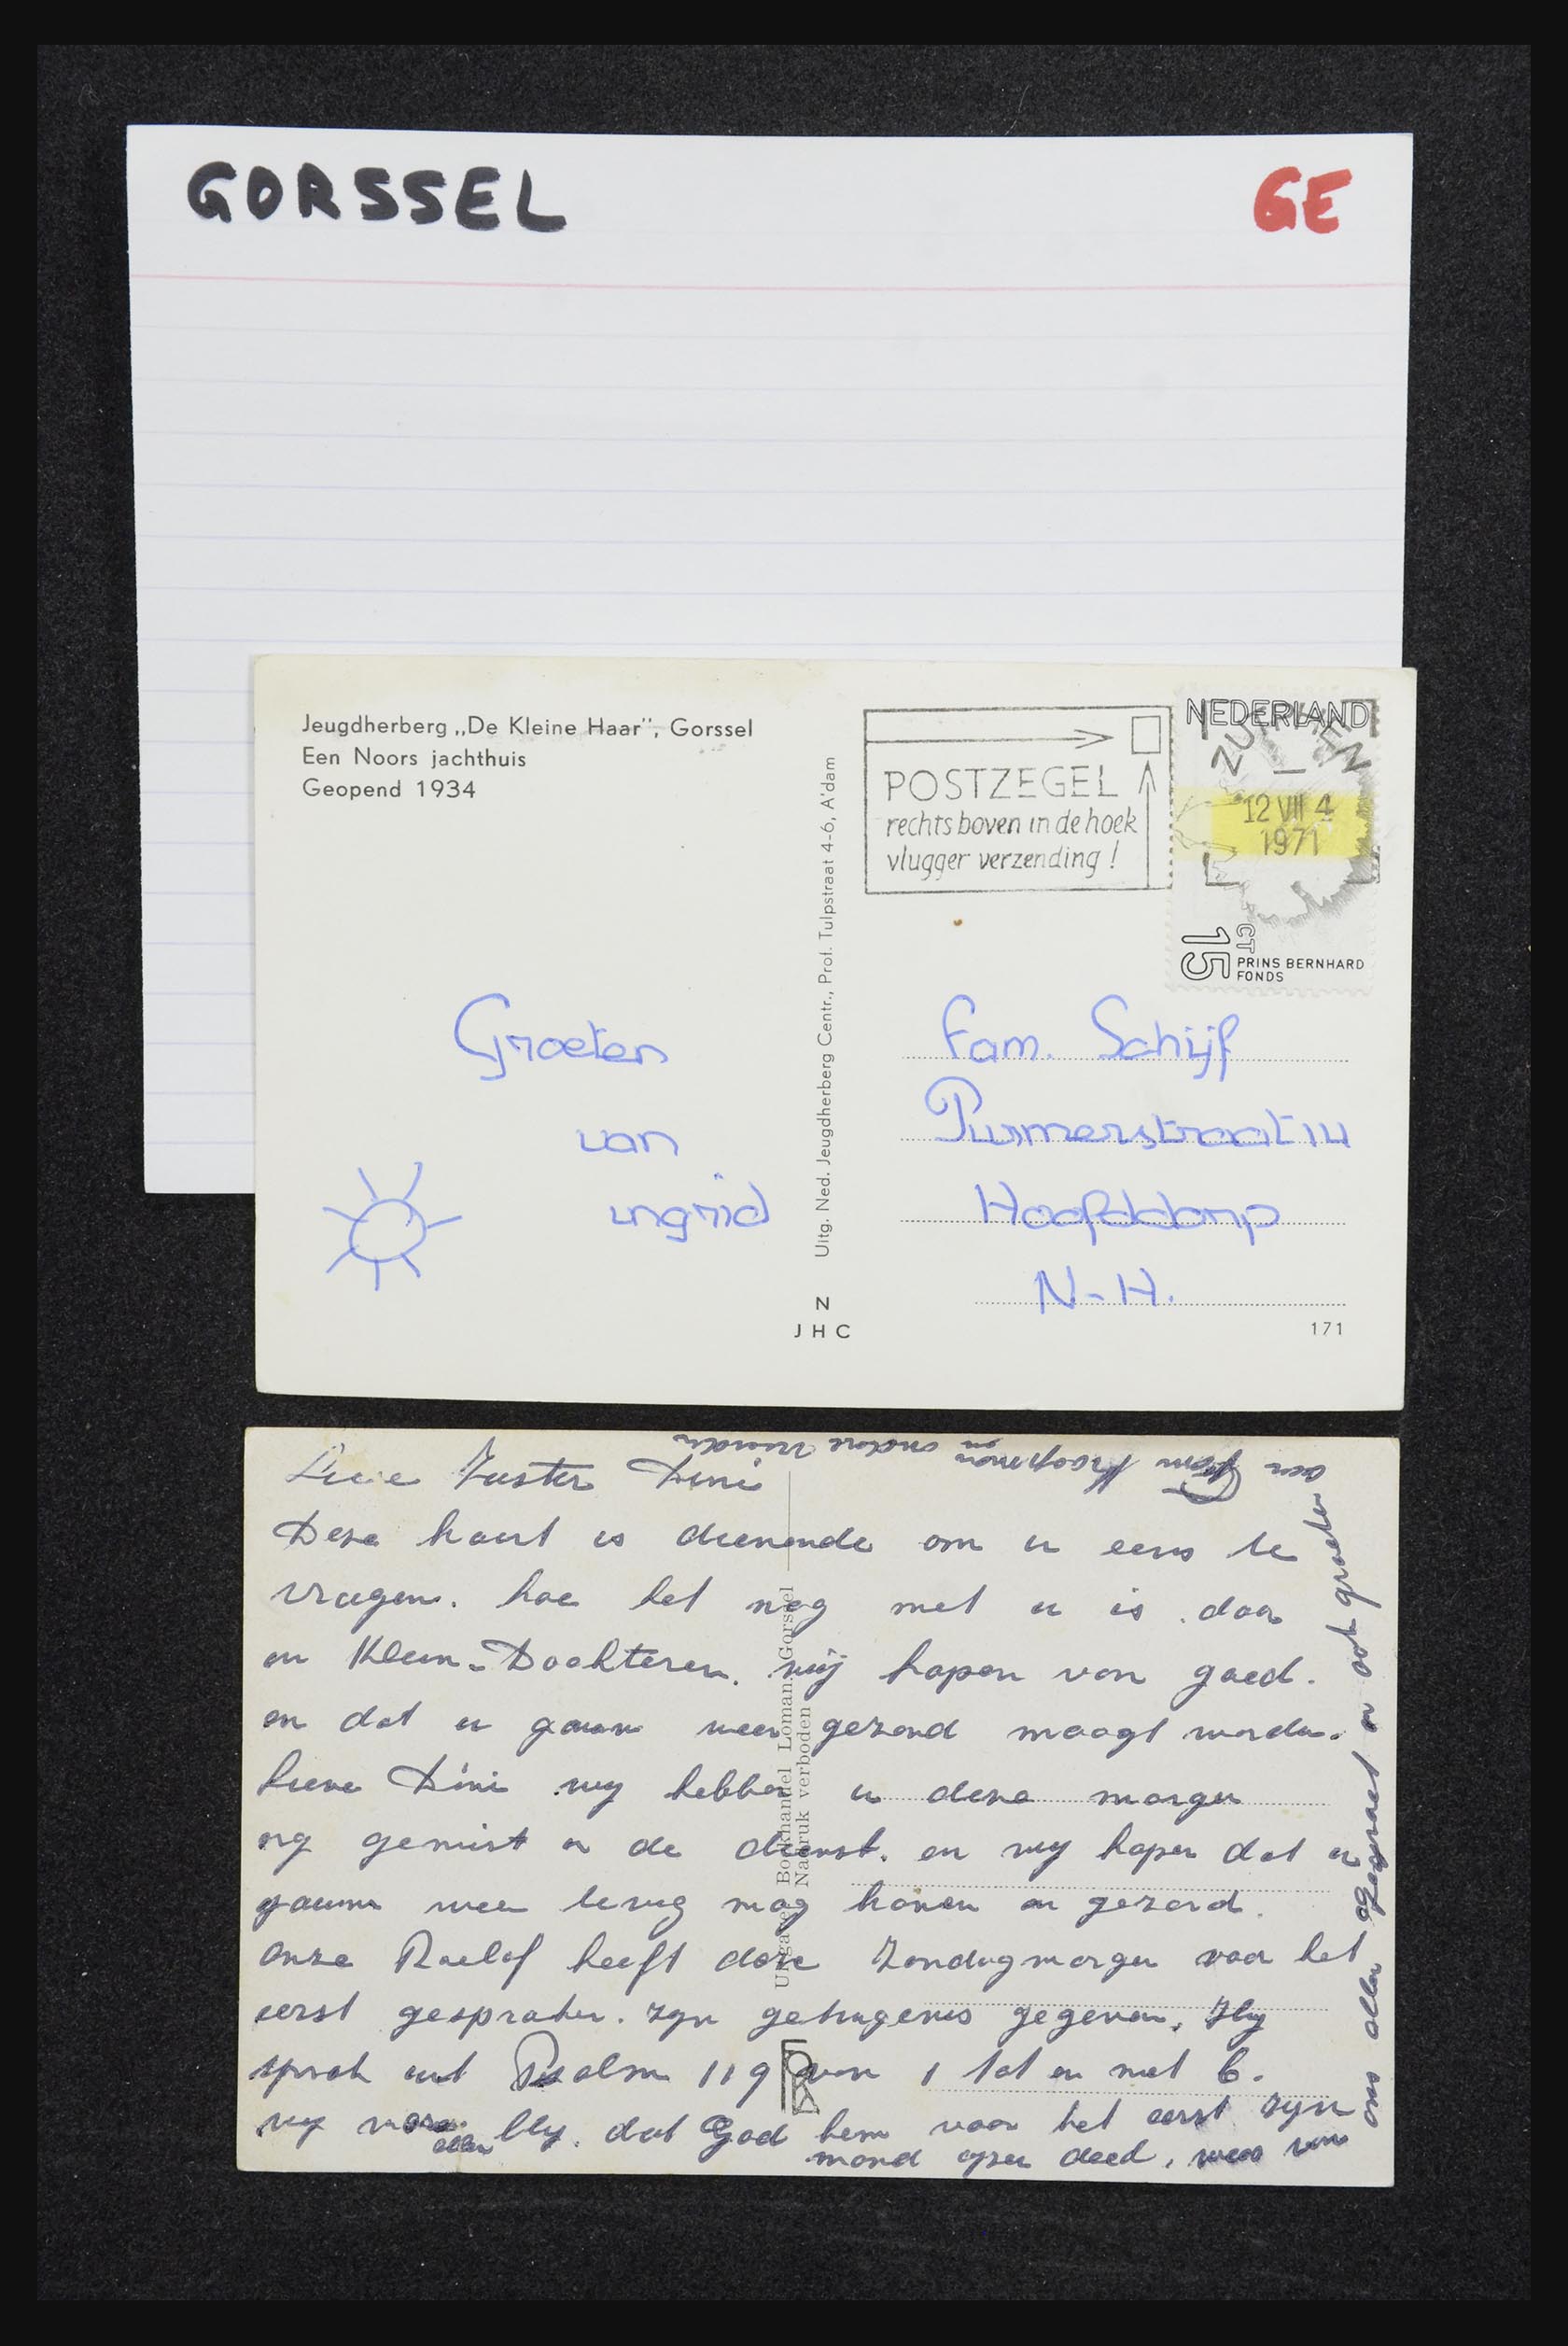 GORSSEL
GE
Jeugdherberg „De Kleine Haar”, Gorssel
Een Noors jachthuis
Geopend 1934
Uitg. Ned. Jeugdherberg Centr., Prof. Tulpstraat 4-6, A'dam
N
JHC
POSTZEGEL
rechts boven in de hoek
vlugger verzending !
NEDERLAND
ZUTPHEN
12 VII 4
1971
15 CT
PRINS BERNHARD
FONDS
Groeten
van
ingrid
Fam. Schijf
Purmerstraat 14
Hoofddorp
N-H.
171
Lieve Zuster Dini
Deze kaart is dienende om u eens te
vragen. hoe het nog met u is. daar
in Klein-Dochteren. wij hopen van goed.
en dat u gauw weer gezond moogt worden.
Lieve Dini wy hebben u deze morgen
gemist in de dienst. en wy hopen dat u
gauw weer terug mag komen en gezond.
Onze Roelof heeft deze Zondagmorgen voor het
eerst gesproken. zyn getuigenis gegeven. Hy
sprak uit Psalm 119 van 1 tot en met 6.
wy waren allen bly. dat God hem voor het eerst zyn
mond open deed. van
ons allen gegroet en ook groeten
aan Fam Koopman en andere vrienden
Uitgave: Boekhandel Loman. Gorssel
Nadruk verboden